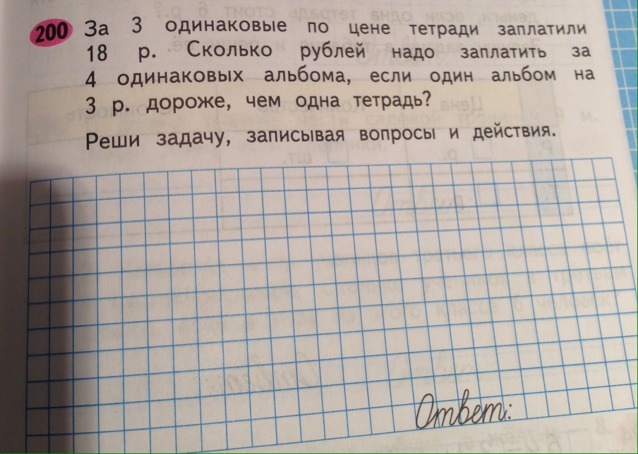 200 За 3 одинаковые по цене тетради заплатили
18 р. Сколько рублей надо заплатить за
4 одинаковых альбома, если один альбом на
3 р. дороже, чем одна тетрадь?
Реши задачу, записывая вопросы и действия.
Ответ: